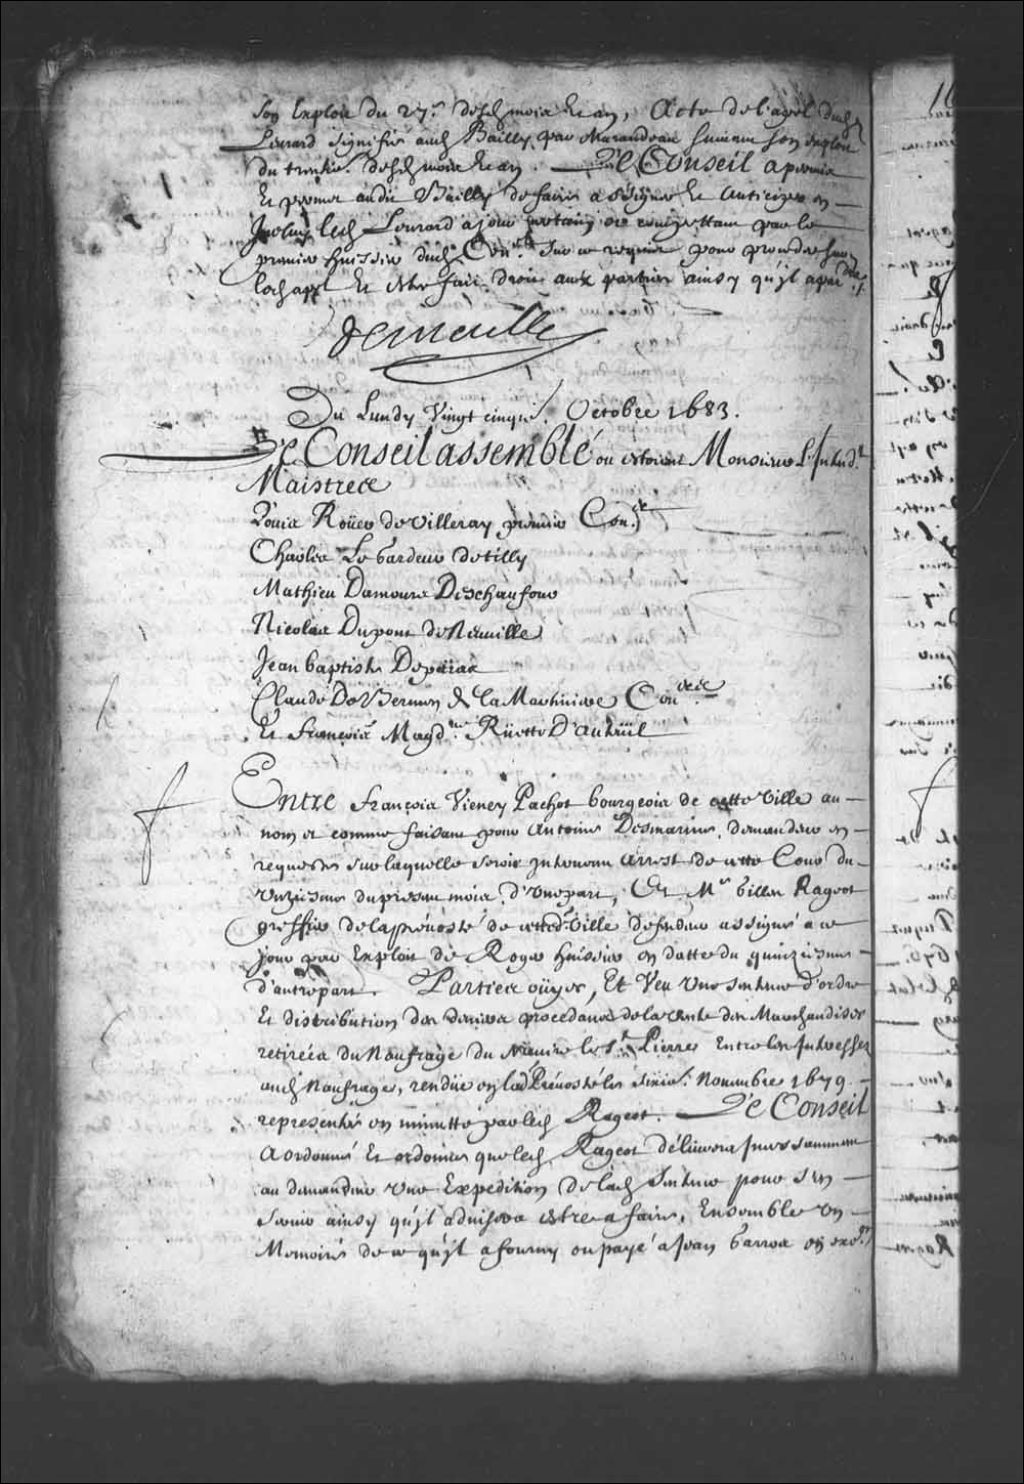 son Exploit du 27.e desd. mois et an, Acte de l'apel dud.
Lourard signiffié aud. Bailly par Marandeau suivant son exploit
du trentie. desd. mois et an. Le Conseil a permis
Et permet audit Bailly de faire assigner et anticiper en
Iceluy led. Lourard a jour certain et competant par le
premier huissier dud. Con.el sur ce requis pour proceder sur
led. apel Et estre fait droit aux parties ainsy qu'jl apar.dra
Demeulle
Du Lundy Vingt cinqe. Octobre 1683.
Le Conseil assemblé ou estoient Monsieur L'Intend.t
Maistres
Louis Roüer de Villeray premier Con.er
Charles Le Gardeur de Tilly
Mathieu Damours Deschaufour
Nicolas Dupont de Neuville
Jean baptiste Depeiras
Claude De Bermen de La Martiniere Con.ers
Et François Magd.ne Rüette D'auteüil
Entre François Vieney Pachot bourgeois de cette Ville au
nom et comme faisant pour Antoine Desmarins, demandeur en
requeste sur laquelle seroit Intervenu arrest de cette Cour du
unziesme du present mois, d'une part, Et M.e Gilles Rageot
greffier de la prévosté de cetted. Ville deffendeur assigné a ce
jour par Exploit de Roger huissier en datte du quinziesme
d'autre part. Parties oüyes, Et Veu une sentence d'ordre
Et distribution des deniers procedans de la vente des Marchandises
retirées du Naufrage du Navire le S.t Pierre Entre les Interessez
aud. Naufrage, rendüe en lad. Prévosté les Novembre 1679.
representée en minutte par led. Rageot. Le Conseil
a ordonné Et ordonne que led. Rageot délivrera Incessamment
au demandeur une Expedition de lad. sentence pour s'en
servir ainsy qu'jl advisera estre a faire, Ensemble un
Memoire de ce qu'jl a fourny ou payé a Jean Garros en